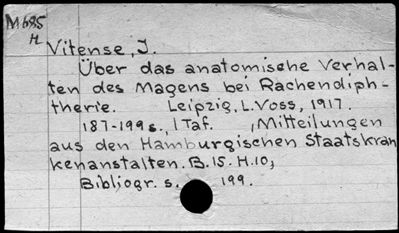 M685
H
Vitense, J.
Über das anatomische Verhal-
ten des Magens bei Rachendiph-
therie. Leipzig, L. Voss, 1917.
187-199 s., 1 Taf. , Mitteilungen
aus den Hamburgischen Staatskran
kenanstalten. B. 15. H. 10,
Bibliogr. s. 199.